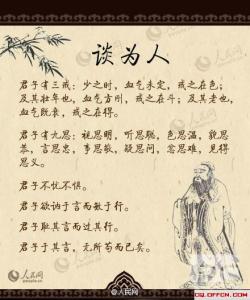 人民网
people.cn
谈为人
君子有三戒：少之时，血气未定，戒之在色；
及其壮也，血气方刚，戒之在斗；及其老也，
血气既衰，戒之在得。
君子有九思：视思明，听思聪，色思温，貌思
恭，言思忠，事思敬，疑思问，忿思难，见得
思义。
君子不忧不惧。
君子欲讷于言而敏于行。
君子耻其言而过其行。
君子于其言，无所苟而已矣。
人民网
people.cn
@人民网
CQ.OFFCN.COM